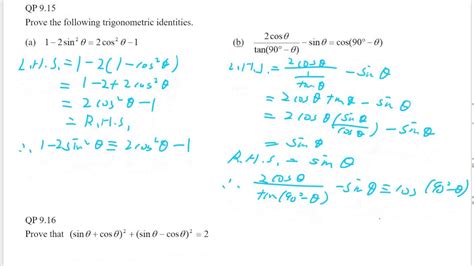 QP 9.15
Prove the following trigonometric identities.
(a) 1 − 2 sin² θ = 2 cos² θ − 1
L.H.S. = 1 − 2(1 − cos² θ)
= 1 − 2 + 2 cos² θ
= 2 cos² θ − 1
= R.H.S.
∴ 1 − 2 sin² θ ≡ 2 cos² θ − 1
(b) 2 cos θ / tan(90° − θ) − sin θ = cos(90° − θ)
L.H.S. = 2 cos θ / (1 / tan θ) − sin θ
= 2 cos θ tan θ − sin θ
= 2 cos θ (sin θ / cos θ) − sin θ
= sin θ
R.H.S. = sin θ
∴ 2 cos θ / tan(90° − θ) − sin θ ≡ cos (90° − θ)
QP 9.16
Prove that (sin θ + cos θ)² + (sin θ − cos θ)² = 2